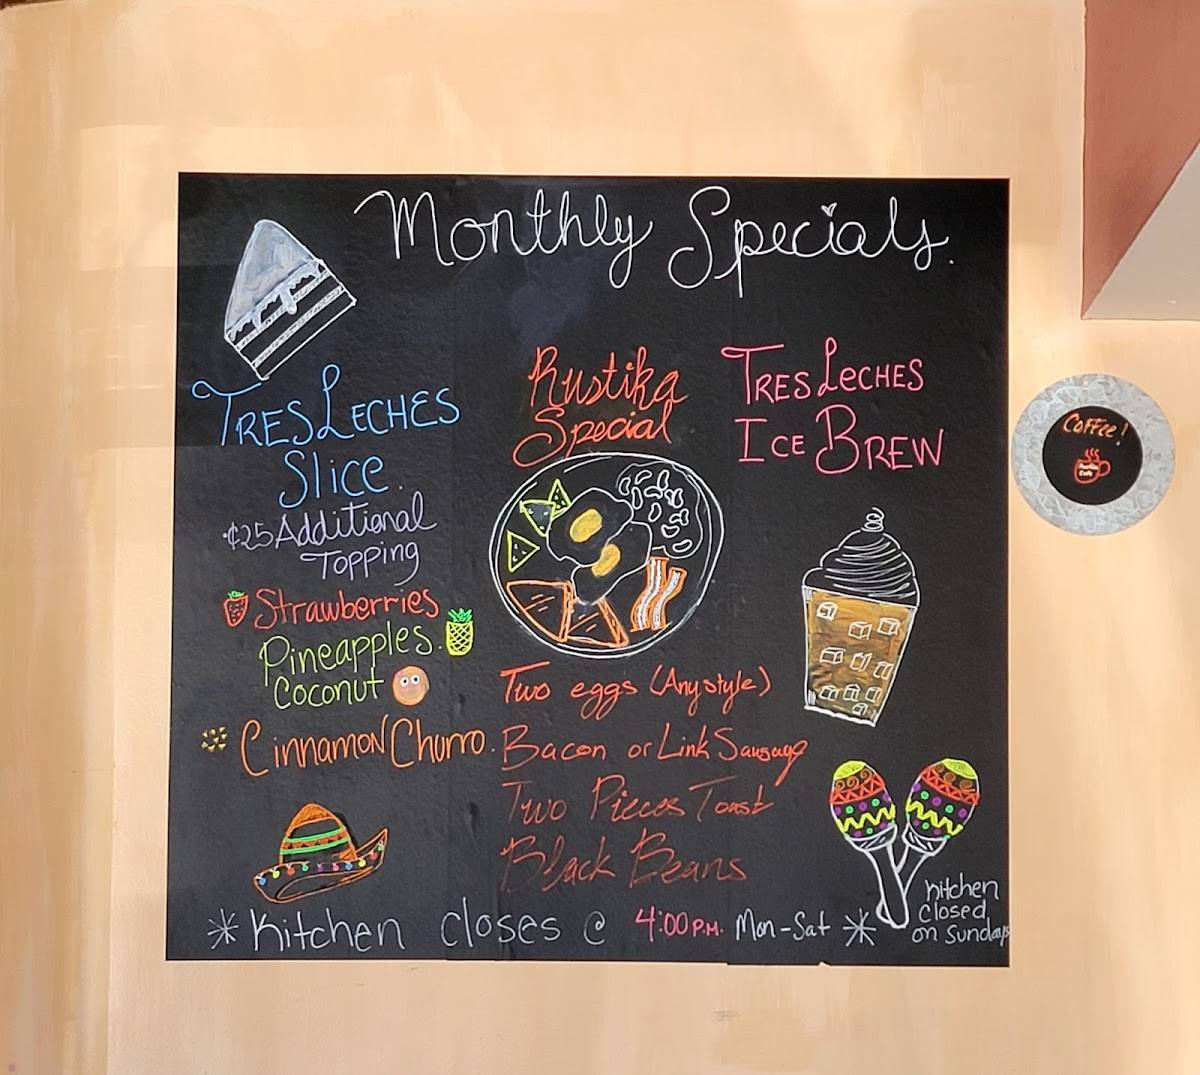 Monthly Specials.
TRES LECHES
Slice.
¢25 Additional
Topping
Strawberries
Pineapples.
Coconut
Cinnamon Churro.
Rustika
Special
Two eggs (Any style)
Bacon or Link Sausage
Two Pieces Toast
Black Beans
TRES LECHES
ICE BREW
* Kitchen closes @ 4:00 P.M. Mon-Sat *
Kitchen
closed
on sundays
Coffee!